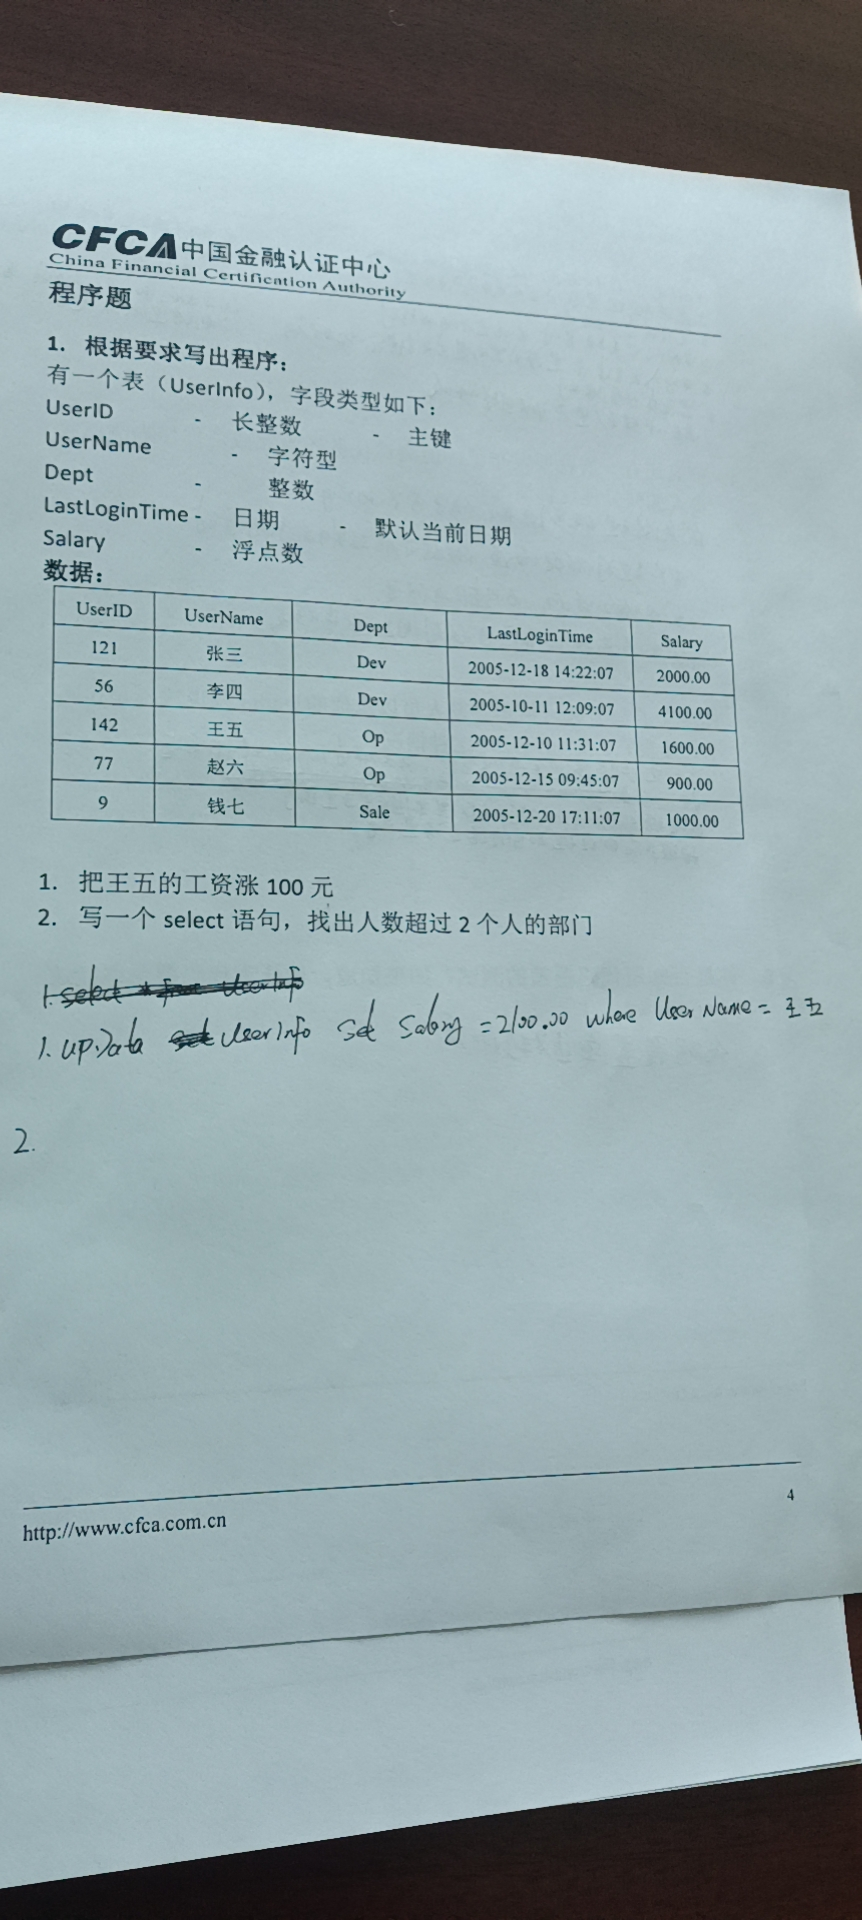 CFCA中国金融认证中心
China Financial Certification Authority
程序题
1. 根据要求写出程序：
有一个表（UserInfo），字段类型如下：
UserID - 长整数 - 主键
UserName - 字符型
Dept - 整数
LastLoginTime - 日期 - 默认当前日期
Salary - 浮点数
数据：
UserID UserName Dept LastLoginTime Salary
121 张三 Dev 2005-12-18 14:22:07 2000.00
56 李四 Dev 2005-10-11 12:09:07 4100.00
142 王五 Op 2005-12-10 11:31:07 1600.00
77 赵六 Op 2005-12-15 09:45:07 900.00
9 钱七 Sale 2005-12-20 17:11:07 1000.00
1. 把王五的工资涨 100 元
2. 写一个 select 语句，找出人数超过 2 个人的部门
1. select * from UserInfo
1. upData set UserInfo set Salary = 2100.00 where UserName = 王五
2.
http://www.cfca.com.cn
4